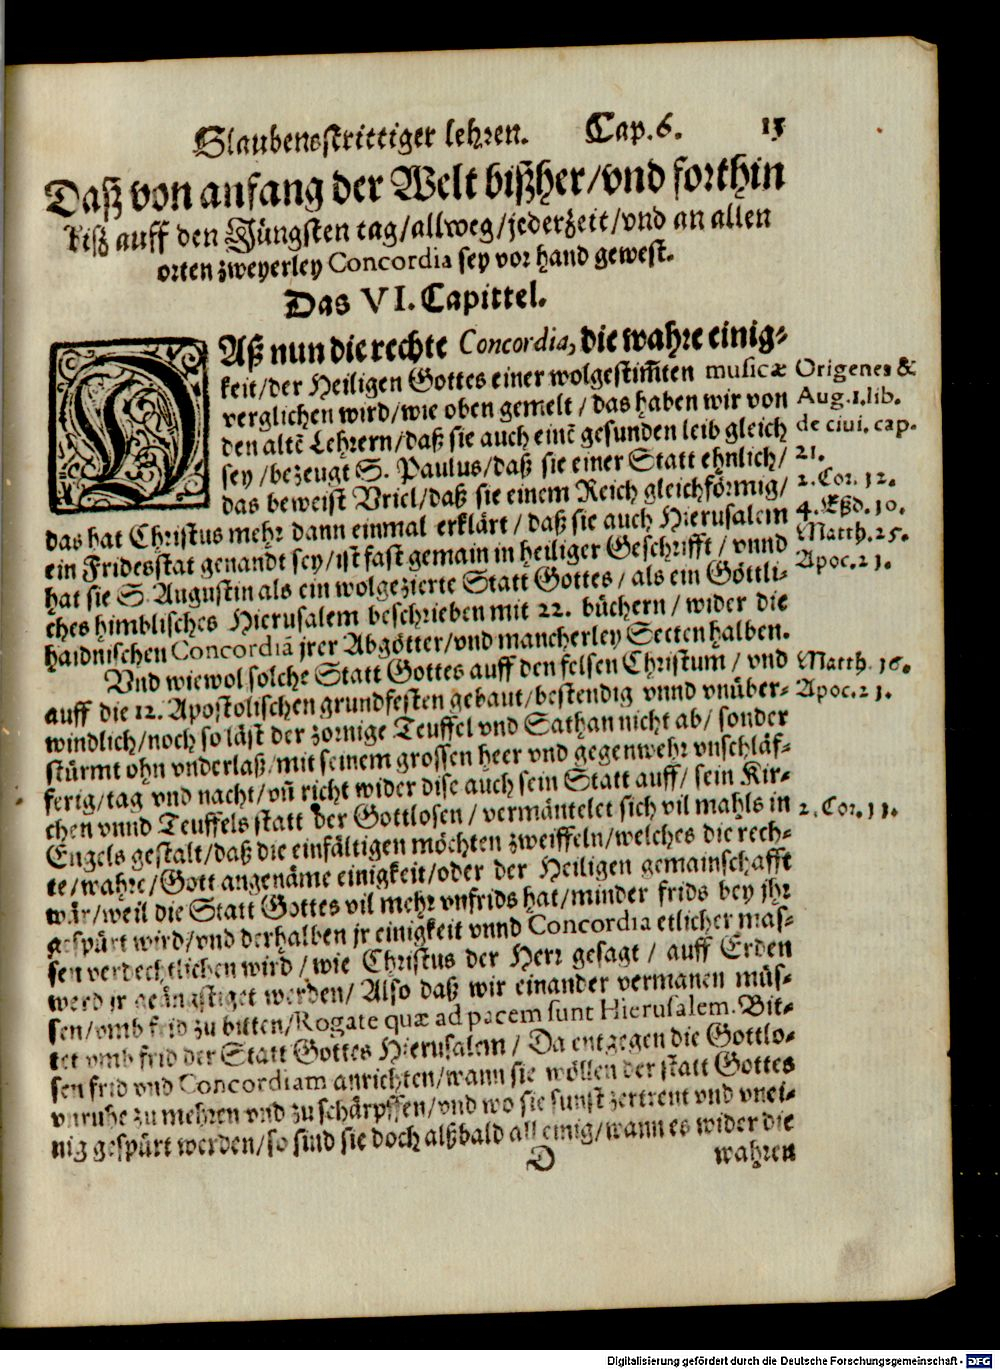 Glaubensstrittiger lehren. Cap. 6. 13
Daß von anfang der Welt bißher/vnd forthin
biß auff den Jüngsten tag/allweg/jederzeit/vnd an allen
orten zweyerley Concordia sey vor hand gewest.
Das VI. Capittel.
DAß nun die rechte Concordia, die wahre einig-
keit/der Heiligen Gottes einer wolgestim̃ten musicæ
verglichen wird/wie oben gemelt/das haben wir von
den altẽ Lehrern/daß sie auch einẽ gesunden leib gleich
sey/bezeugt S. Paulus/daß sie einer Statt ehnlich/
das beweist Vriel/daß sie einem Reich gleichförmig/
das hat Christus mehr dann einmal erklärt/daß sie auch Hierusalem
ein Fridesstat genandt sey/ist fast gemain in heiliger Geschrifft/vnnd
hat sie S. Augustin als ein wolgezierte Statt Gottes/als ein Göttli-
ches himblisches Hierusalem beschrieben mit 22. büchern/wider die
haidnischen Concordiã jrer Abgötter/vnd mancherley Secten halben.
Origenes &
Aug. 1. lib.
de ciui. cap.
21.
1. Cor. 12.
4. Eßd. 10.
Matth. 25.
Apoc. 21.
Vnd wiewol solche Statt Gottes auff den felsen Christum/vnd
auff die 12. Apostolischen grundfesten gebaut/bestendig vnnd vnüber-
windlich/noch so läst der zornige Teuffel vnd Sathan nicht ab/sonder
stürmt ohn vnderlaß/mit seinem grossen heer vnd gegenwehr vnschläf-
ferig/tag vnd nacht/vñ richt wider dise auch sein Statt auff/sein Kir-
chen vnnd Teuffels statt der Gottlosen/vermäntelet sich vil mahls in
Engels gestalt/daß die einfältigen möchten zweiffeln/welches die rech-
te/wahre/Gott angenäme einigkeit/oder der Heiligen gemainschafft
wär/weil die Statt Gottes vil mehr vnfrids hat/minder frids bey jhr
gespürt wird/vnd derhalben jr einigkeit vnnd Concordia etlicher mas-
sen verdechtlichen wird/wie Christus der Herr gesagt/auff Erden
werd jr geängstiget werden/Also daß wir einander vermanen müs-
sen/vmb frid zu bitten/Rogate quæ ad pacem sunt Hierusalem. Bit-
tet vmb frid der Statt Gottes Hierusalem/Da entgegen die Gottlo-
sen frid vnd Concordiam anrichten/wann sie wöllen der statt Gottes
vnruhe zu mehren vnd zu schärpffen/vnd wo sie sunst zertrent vnd vnei-
nig gespürt werden/so sind sie doch alßbald all einig/wann es wider die
Matth. 16.
Apoc. 21.
2. Cor. 11.
D wahren
Digitalisierung gefördert durch die Deutsche Forschungsgemeinschaft - DFG